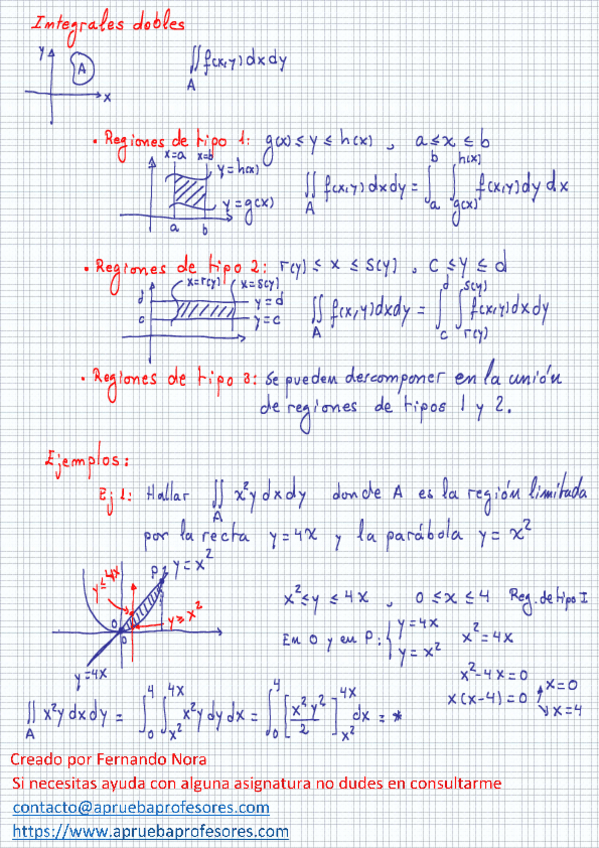 Integrales dobles
y
A
x
∬_A f(x,y) dx dy
• Regiones de tipo 1: g(x) ≤ y ≤ h(x) , a ≤ x ≤ b
x=a x=b
y=h(x)
y=g(x)
a b
∬_A f(x,y) dx dy = ∫_a^b ∫_{g(x)}^{h(x)} f(x,y) dy dx
• Regiones de tipo 2: r(y) ≤ x ≤ s(y) , c ≤ y ≤ d
x=r(y) x=s(y)
d
y=d
c
y=c
∬_A f(x,y) dx dy = ∫_c^d ∫_{r(y)}^{s(y)} f(x,y) dx dy
• Regiones de tipo 3: Se pueden descomponer en la unión
de regiones de tipos 1 y 2.
Ejemplos:
Ej 1: Hallar ∬_A x²y dx dy donde A es la región limitada
por la recta y=4x y la parábola y=x²
y≤4x
P
y=x²
y≥x²
O
y=4x
x² ≤ y ≤ 4x , 0 ≤ x ≤ 4 Reg. de tipo I
En O y en P: { y=4x
y=x²
x²=4x
x²-4x=0
x(x-4)=0
x=0
x=4
∬_A x²y dx dy = ∫_0^4 ∫_{x²}^{4x} x²y dy dx = ∫_0^4 [x²y²/2]_{x²}^{4x} dx = *
Creado por Fernando Nora
Si necesitas ayuda con alguna asignatura no dudes en consultarme
contacto@apruebaprofesores.com
https://www.apruebaprofesores.com